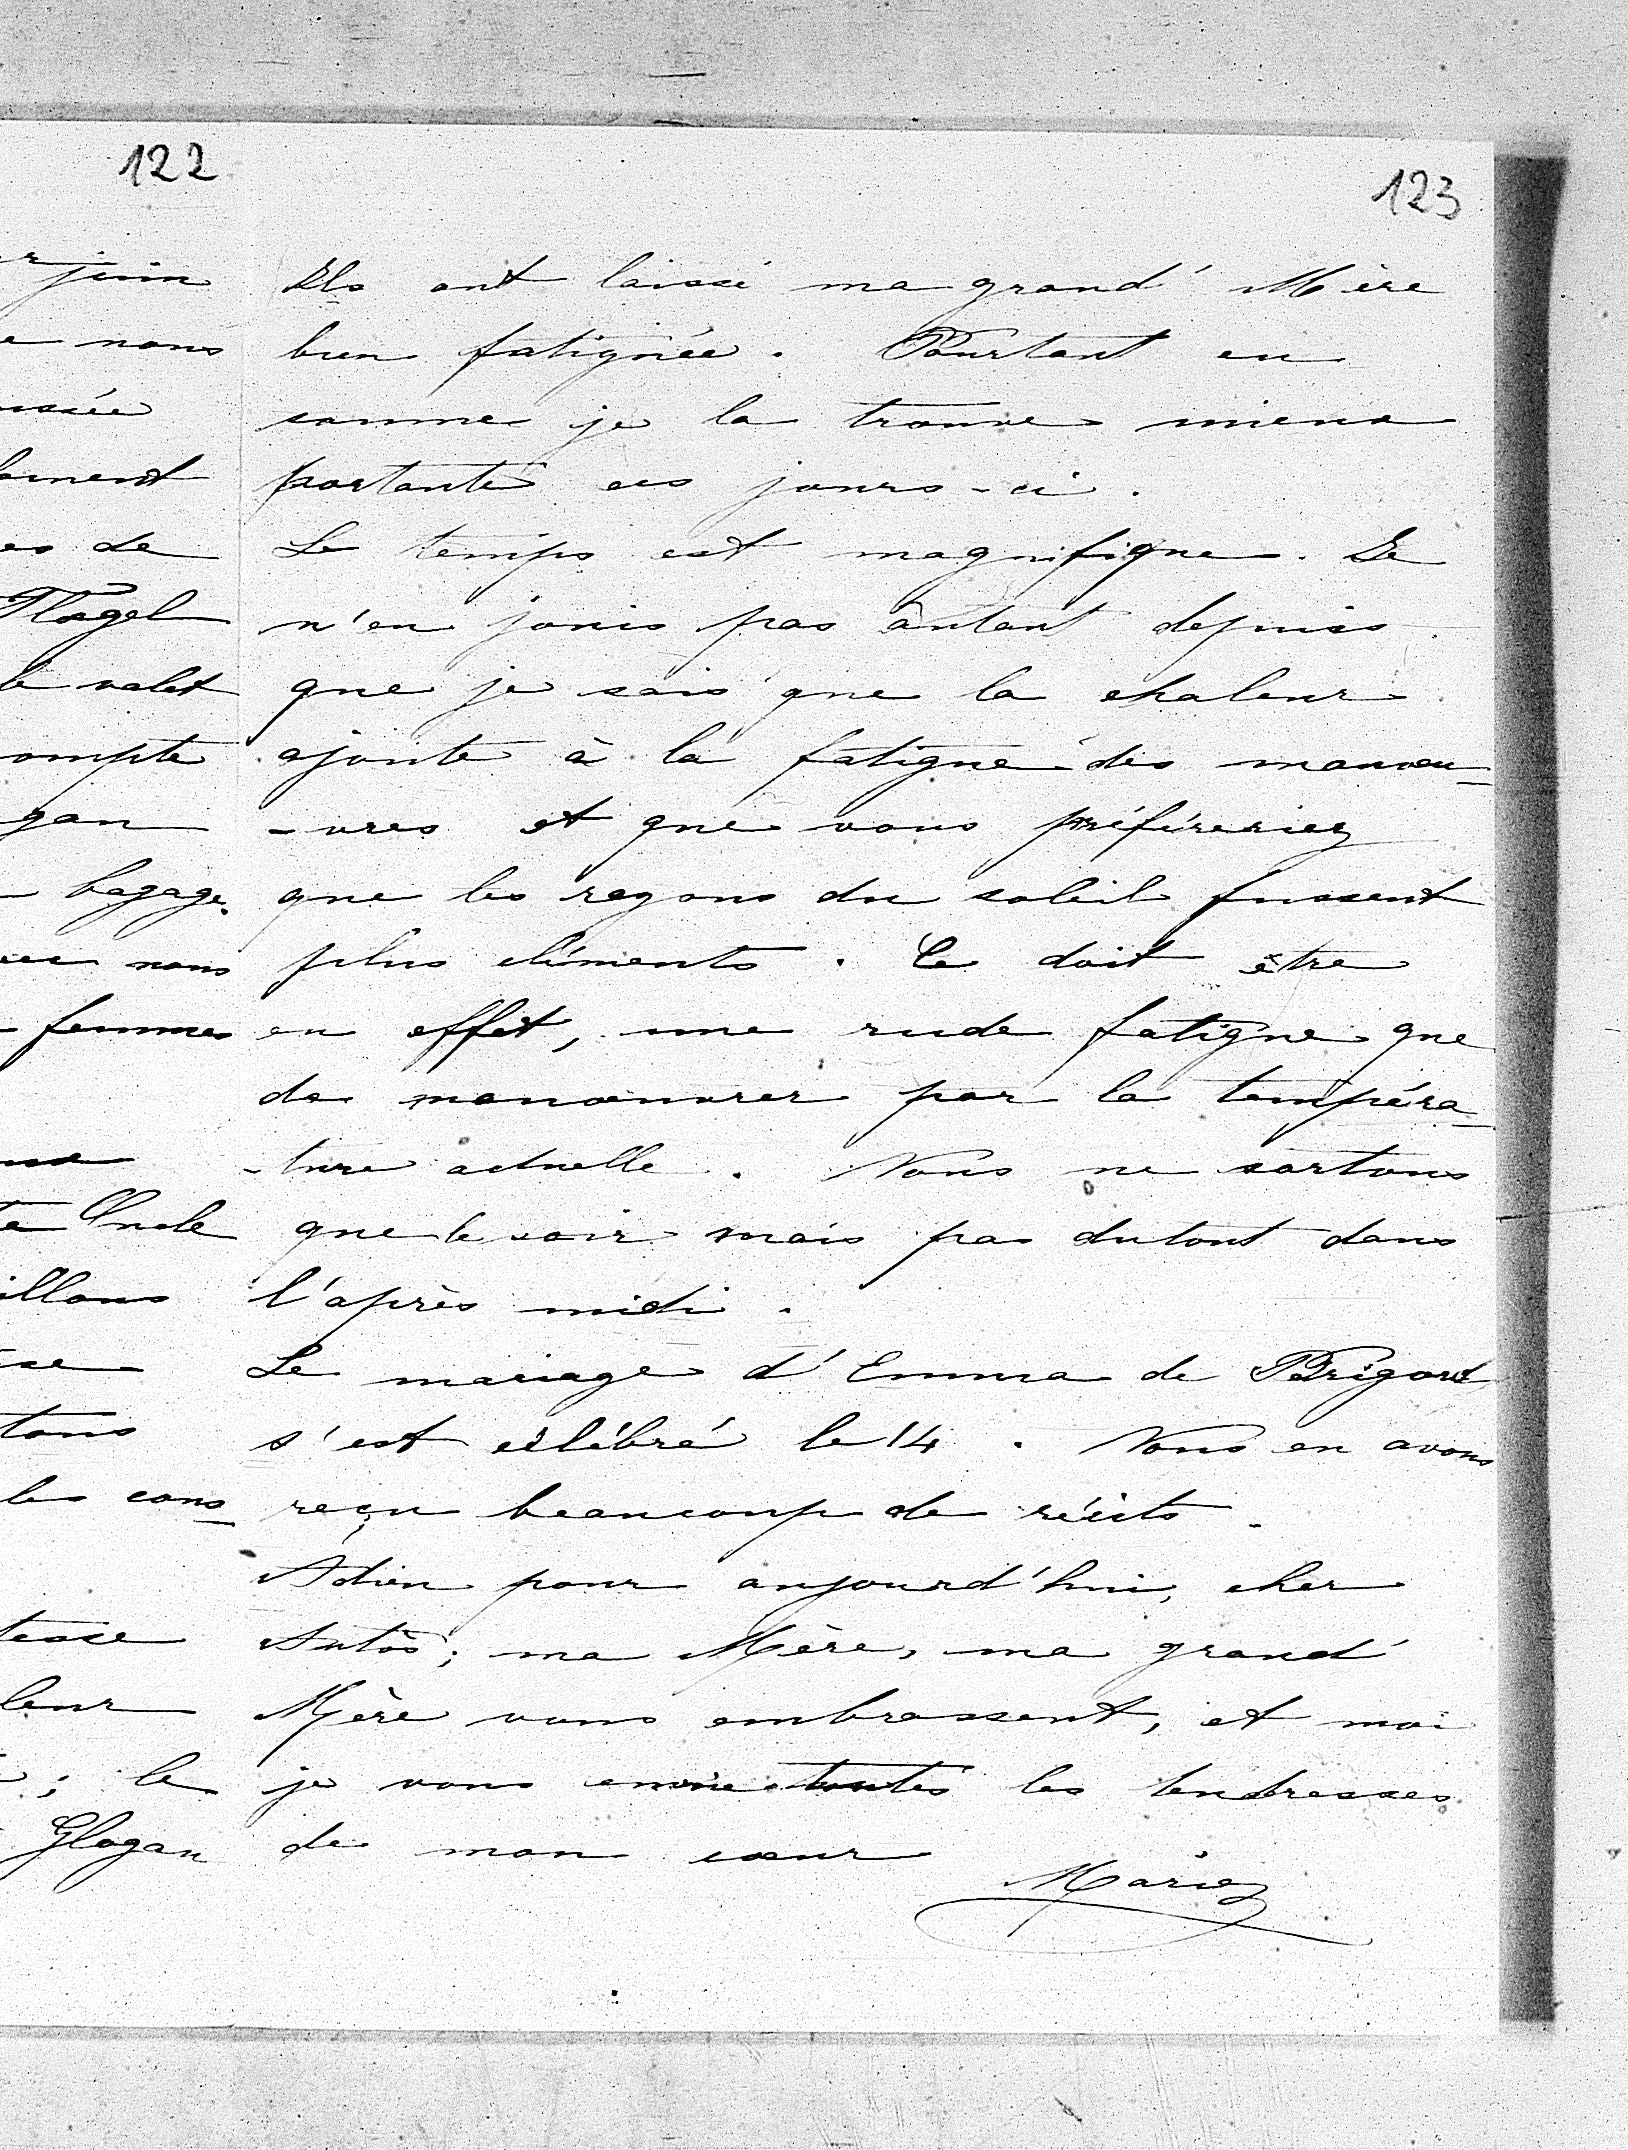 122
juin
nous
lement
es de
Flagel
le valet
ompte
gan
bagage.
nous
femmes
Oncle
illons
tons
les cons
tesse
leur
; le
Glogau
123
Ils ont laissé ma grand' Mère
bien fatiguée. Pourtant en
somme je la trouve mieux
portante ces jours-ci.
Le temps est magnifique. Je
n'en jouis pas autant depuis
que je sais que la chaleur
ajoute à la fatigue des manoeu-
-vres et que vous préféreriez
que les rayons du soleil fussent
plus cléments. Ce doit être
en effet, une rude fatigue que
de manoeuvrer par la tempéra-
-ture actuelle. Nous ne sortons
que le soir mais pas du tout dans
l'après midi.
Le mariage d'Emma de
s'est célébré le 14. Nous en avons
reçu beaucoup de récits.
Adieu pour aujourd'hui, cher
; ma Mère, ma grand'
Mère vous embrassent, et moi
je vous envoie toutes les tendresses
de mon coeur
Marie